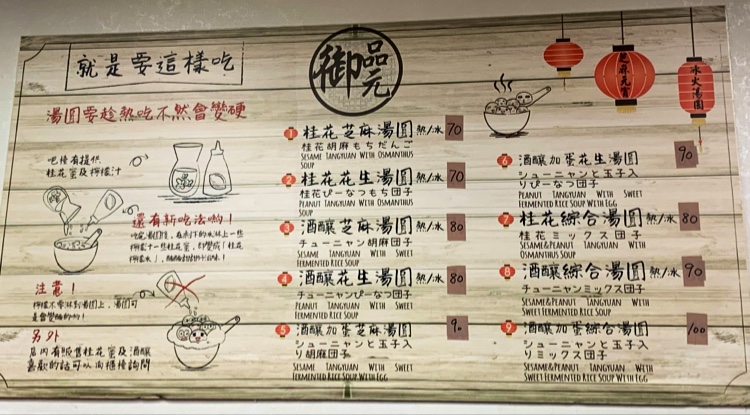 就是要這樣吃
湯圓要趁熱吃不然會變硬
吧檯有提供
桂花蜜及檸檬汁
還有新吃法喲！
注意！
檸檬不要淋到湯圓上，湯圓可
另外
店內有販售桂花蜜及酒釀
喜歡的話可以向櫃檯詢問
御品元
芝麻元宵
冰火湯圓
1 桂花芝麻湯圓 熱/冰 70
桂花胡麻もちだんご
Sesame Tangyuan With Osmanthus
Soup
2 桂花花生湯圓 熱/冰 70
桂花ぴーなつもち団子
Peanut Tangyuan With Osmanthus
Soup
3 酒釀芝麻湯圓 熱/冰 80
チューニャン胡麻団子
Sesame Tangyuan With Sweet
Fermented Rice Soup
4 酒釀花生湯圓 熱/冰 80
チューニャンぴーなつ団子
Peanut Tangyuan With Sweet
Fermented Rice Soup
5 酒釀加蛋芝麻湯圓 90
シューニャンと玉子入
り胡麻団子
Sesame Tangyuan With Sweet
Fermented Rice Soup With Egg
6 酒釀加蛋花生湯圓 90
シューニャンと玉子入
りぴーなつ団子
Peanut Tangyuan With Sweet
Fermented Rice Soup With Egg
7 桂花綜合湯圓 熱/冰 80
桂花ミックス団子
Sesame&Peanut Tangyuan With
Osmanthus Soup
8 酒釀綜合湯圓 熱/冰 90
チューニャンミックス団子
Sesame&Peanut Tangyuan With
Sweet Fermented Rice Soup
9 酒釀加蛋綜合湯圓 100
シューニャンと玉子入
りミックス団子
Sesame&Peanut Tangyuan With
Sweet Fermented Rice Soup With Egg